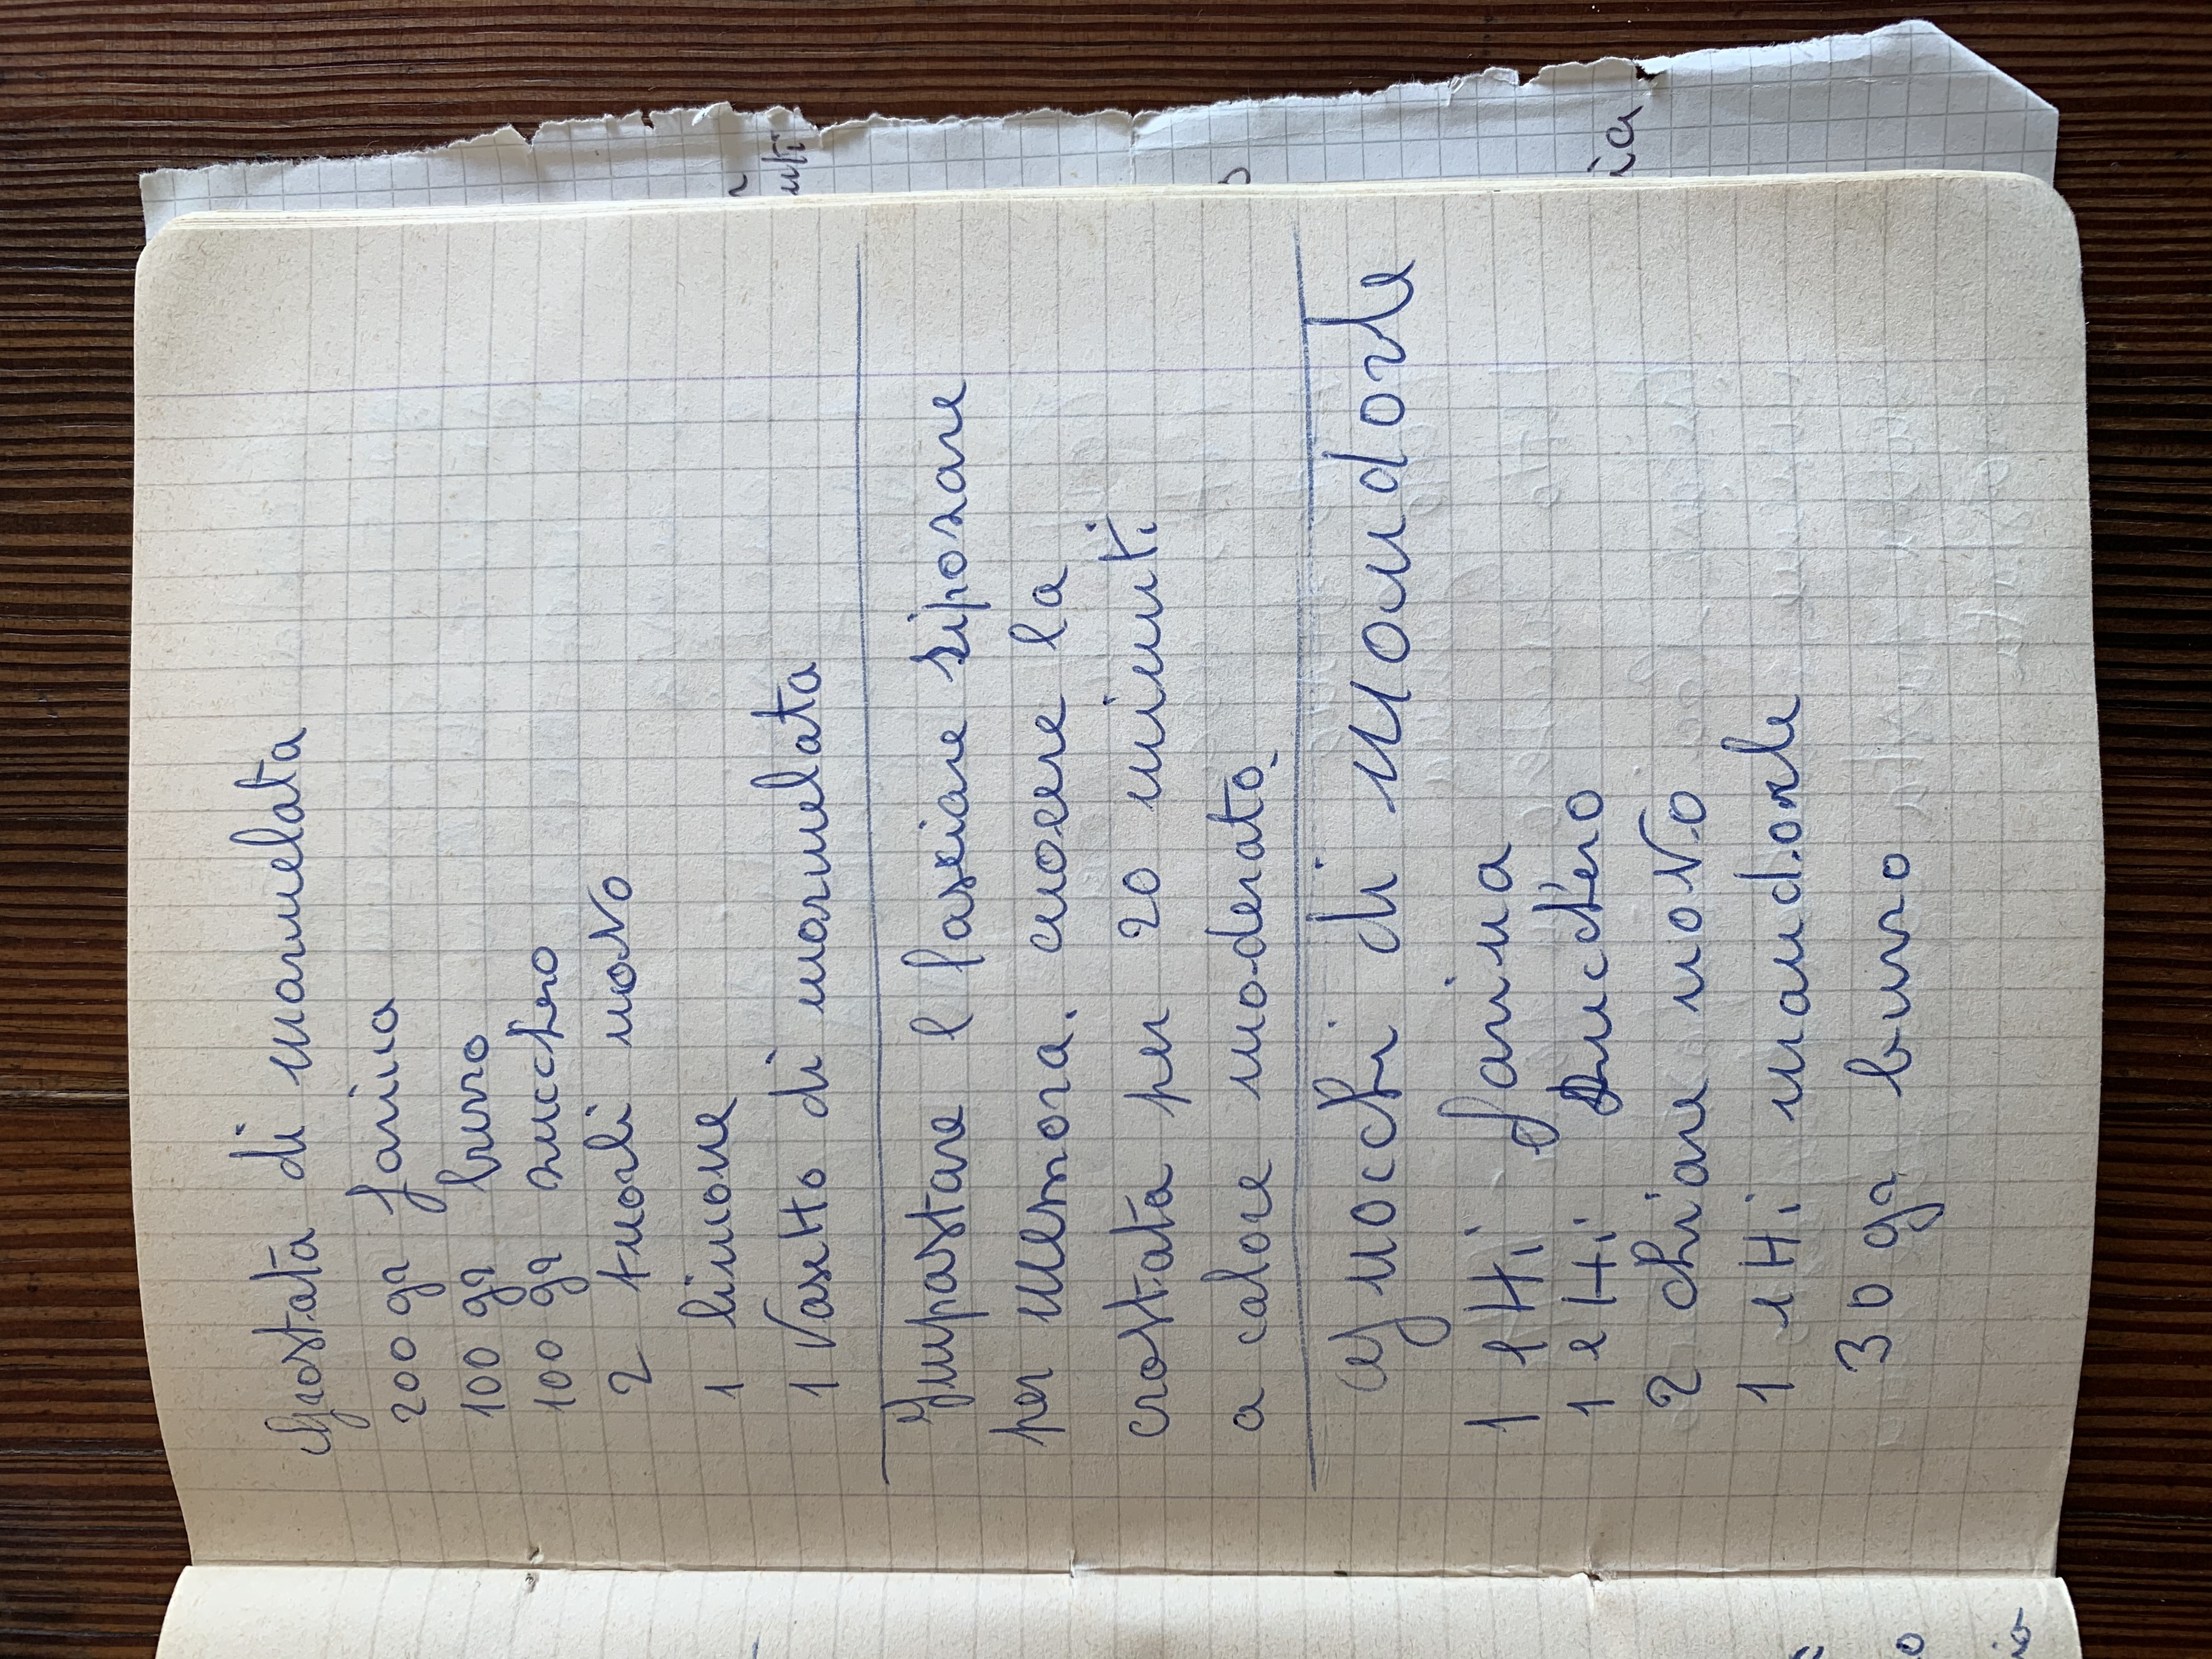 Grostata di marmelata
200 gr farina
100 gr burro
100 gr zucchero
2 tuorli uovo
1 limone
1 Vasetto di marmelata
Impastare e lasciare riposare
per mezzora. cuocere la
crostata per 20 minuti
a calore moderato
Gnocchi di mandorle
1 etti farina
1 etti zucchero
2 chiare uovo
1 etti mandorle
30 gr burro
uti
ia